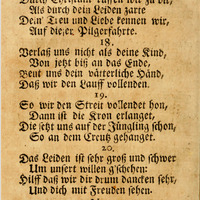 Durch Christum ruffen wir zu dir,
Als durch dein Leiden zarte
Dein' Treu und Liebe kennen wir,
Auf dieser Pilgerfahrte.
18.
Verlaß uns nicht als deine Kind,
Von jetzt biß an das Ende,
Beut uns dein vätterliche Händ,
Daß wir den Lauff vollenden.
19.
So wir den Streit vollendet hon,
Dann ist die Kron erlanget,
Die setzt uns auf der Jüngling schon,
So an dem Creutz gehanget.
20.
Das Leiden ist sehr groß und schwer
Um unsert willen g'schehen:
Hilff daß wir dir drum dancken sehr,
Und dich mit Freuden sehen.